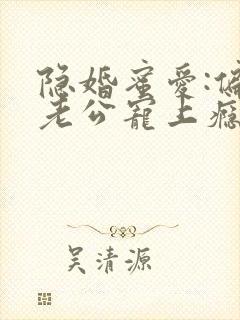 隐婚蜜爱:偏
老公宠上瘾
吴清源